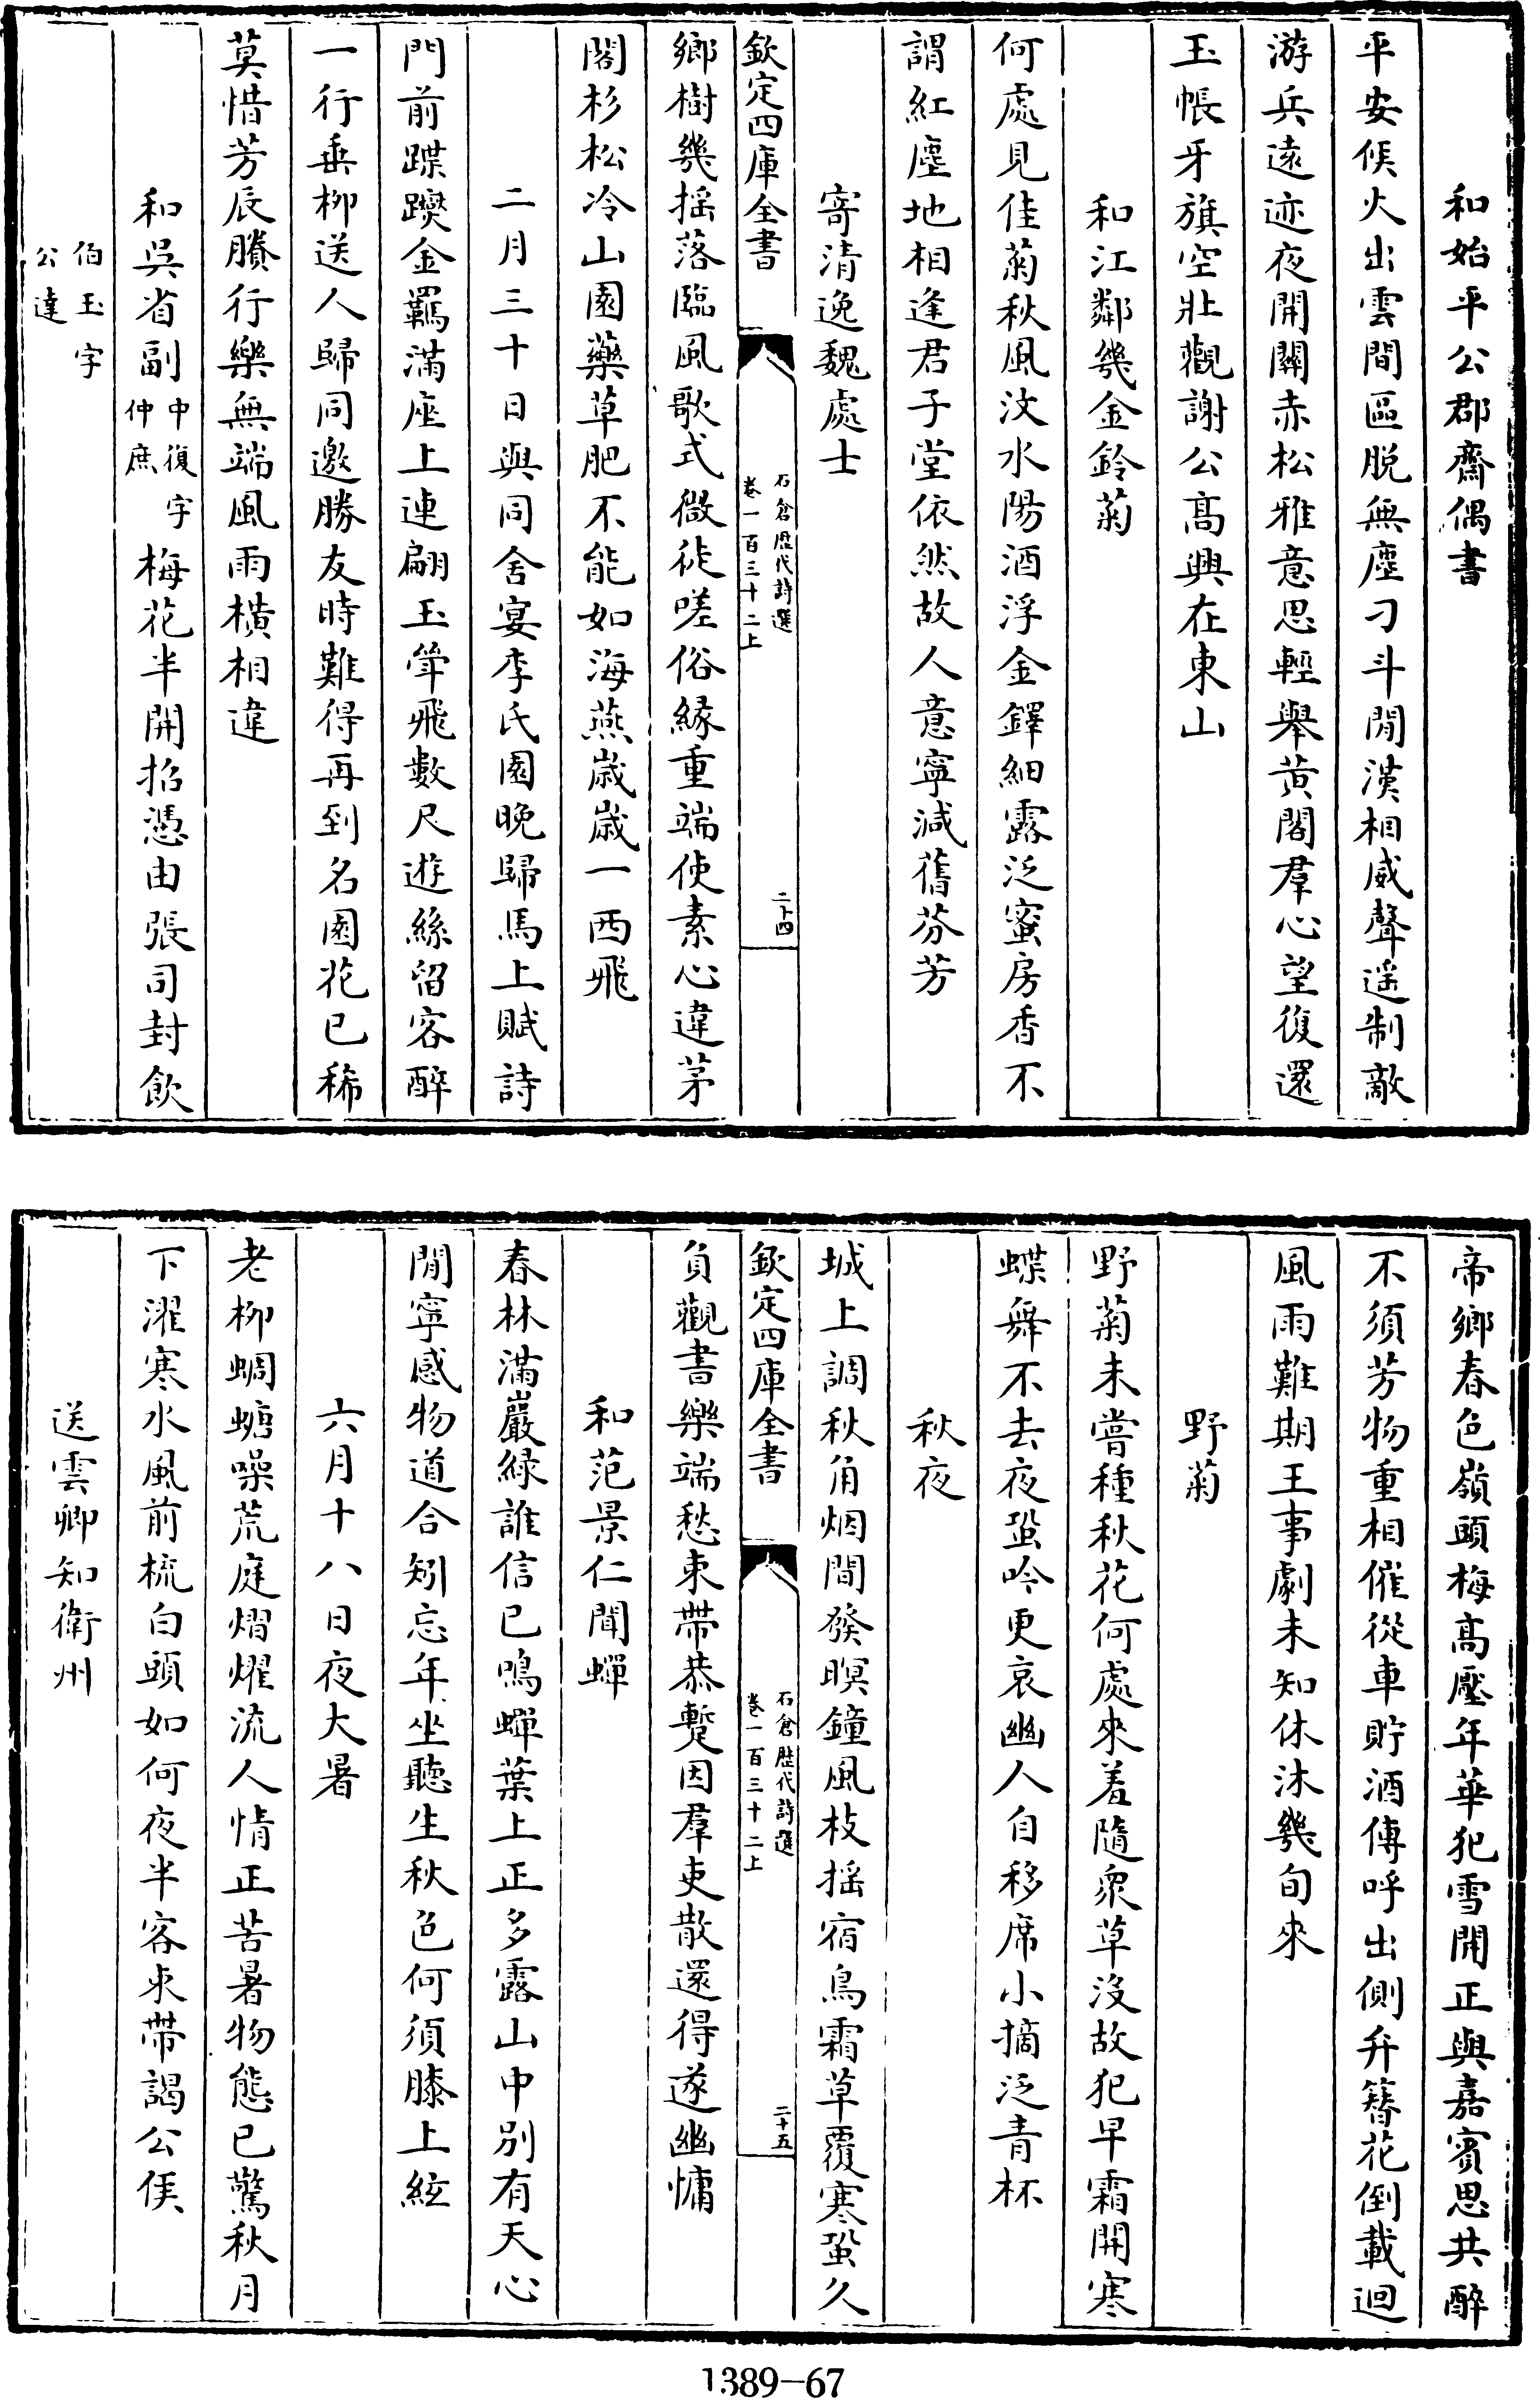 和始平公郡齋偶書
平安候火出雲間區脱無塵刁斗閒漢相威聲遥制敵
游兵遠迹夜開關赤松雅意思輕舉黄閣羣心望復還
玉帳牙旗空壯觀謝公髙興在東山
和江鄰幾金鈴菊
何處見佳菊秋風汶水陽酒浮金鐸細露泛蜜房香不
謂紅塵地相逢君子堂依然故人意寧減舊芬芳
寄清逸魏處士
欽定四庫全書
石倉歴代詩選
卷一百三十二上
二十四
鄉樹幾揺落臨風歌式微徒嗟俗緣重端使素心違茅
閣杉松冷山園藥草肥不能如海燕歲歲一西飛
二月三十日與同舍宴李氏園晚歸馬上賦詩
門前蹀躞金羈滿座上連翩玉斝飛數尺遊絲留客醉
一行垂柳送人歸同邀勝友時難得再到名園花已稀
莫惜芳辰賸行樂無端風雨橫相違
和吳省副中復字仲庶梅花半開招憑由張司封飲
伯玉字
公達
帝鄉春色嶺頭梅髙壓年華犯雪開正與嘉賓思共醉
不須芳物重相催從車貯酒傳呼出側弁簪花倒載迴
風雨難期王事劇未知休沐幾旬來
野菊
野菊未嘗種秋花何處來羞隨衆草沒故犯早霜開寒
蝶舞不去夜蛩吟更哀幽人自移席小摘泛青杯
秋夜
城上調秋角烟間發暝鐘風枝揺宿鳥霜草覆寒蛩久
欽定四庫全書
石倉歴代詩選
卷一百三十二上
二十五
負觀書樂端愁束帶恭蹔因羣吏散還得遂幽慵
和范景仁聞蟬
春林滿巖緑誰信已鳴蟬葉上正多露山中别有天心
閒寧感物道合矧忘年坐聽生秋色何須膝上絃
六月十八日夜大暑
老柳蜩螗噪荒庭熠燿流人情正苦暑物態已驚秋月
下濯寒水風前梳白頭如何夜半客束帶謁公侯
送雲卿知衛州
1389-67